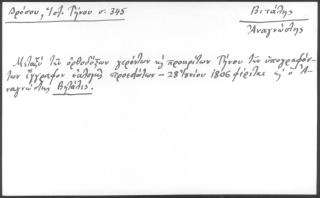 Δρόσου, Ἱστ. Τήνου σ. 345
Βιτάλης
Ἀναγνώστης
Μεταξὺ τῶν ὀρθοδόξων γερόντων καὶ προκρίτων Τήνου τῶν ὑπογραφόν-
των ἔγγραφον ἐκλογῆς προεστώτων – 28 Ἰουνίου 1806 φέρεται καὶ ὁ Ἀ-
ναγνώστης Βητάλης.